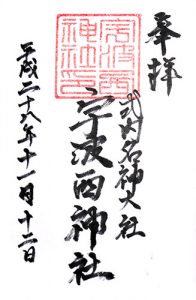 奉拝
式内名神大社
宇波西神社
宇波西
神社印
平成二十八年十一月十二日